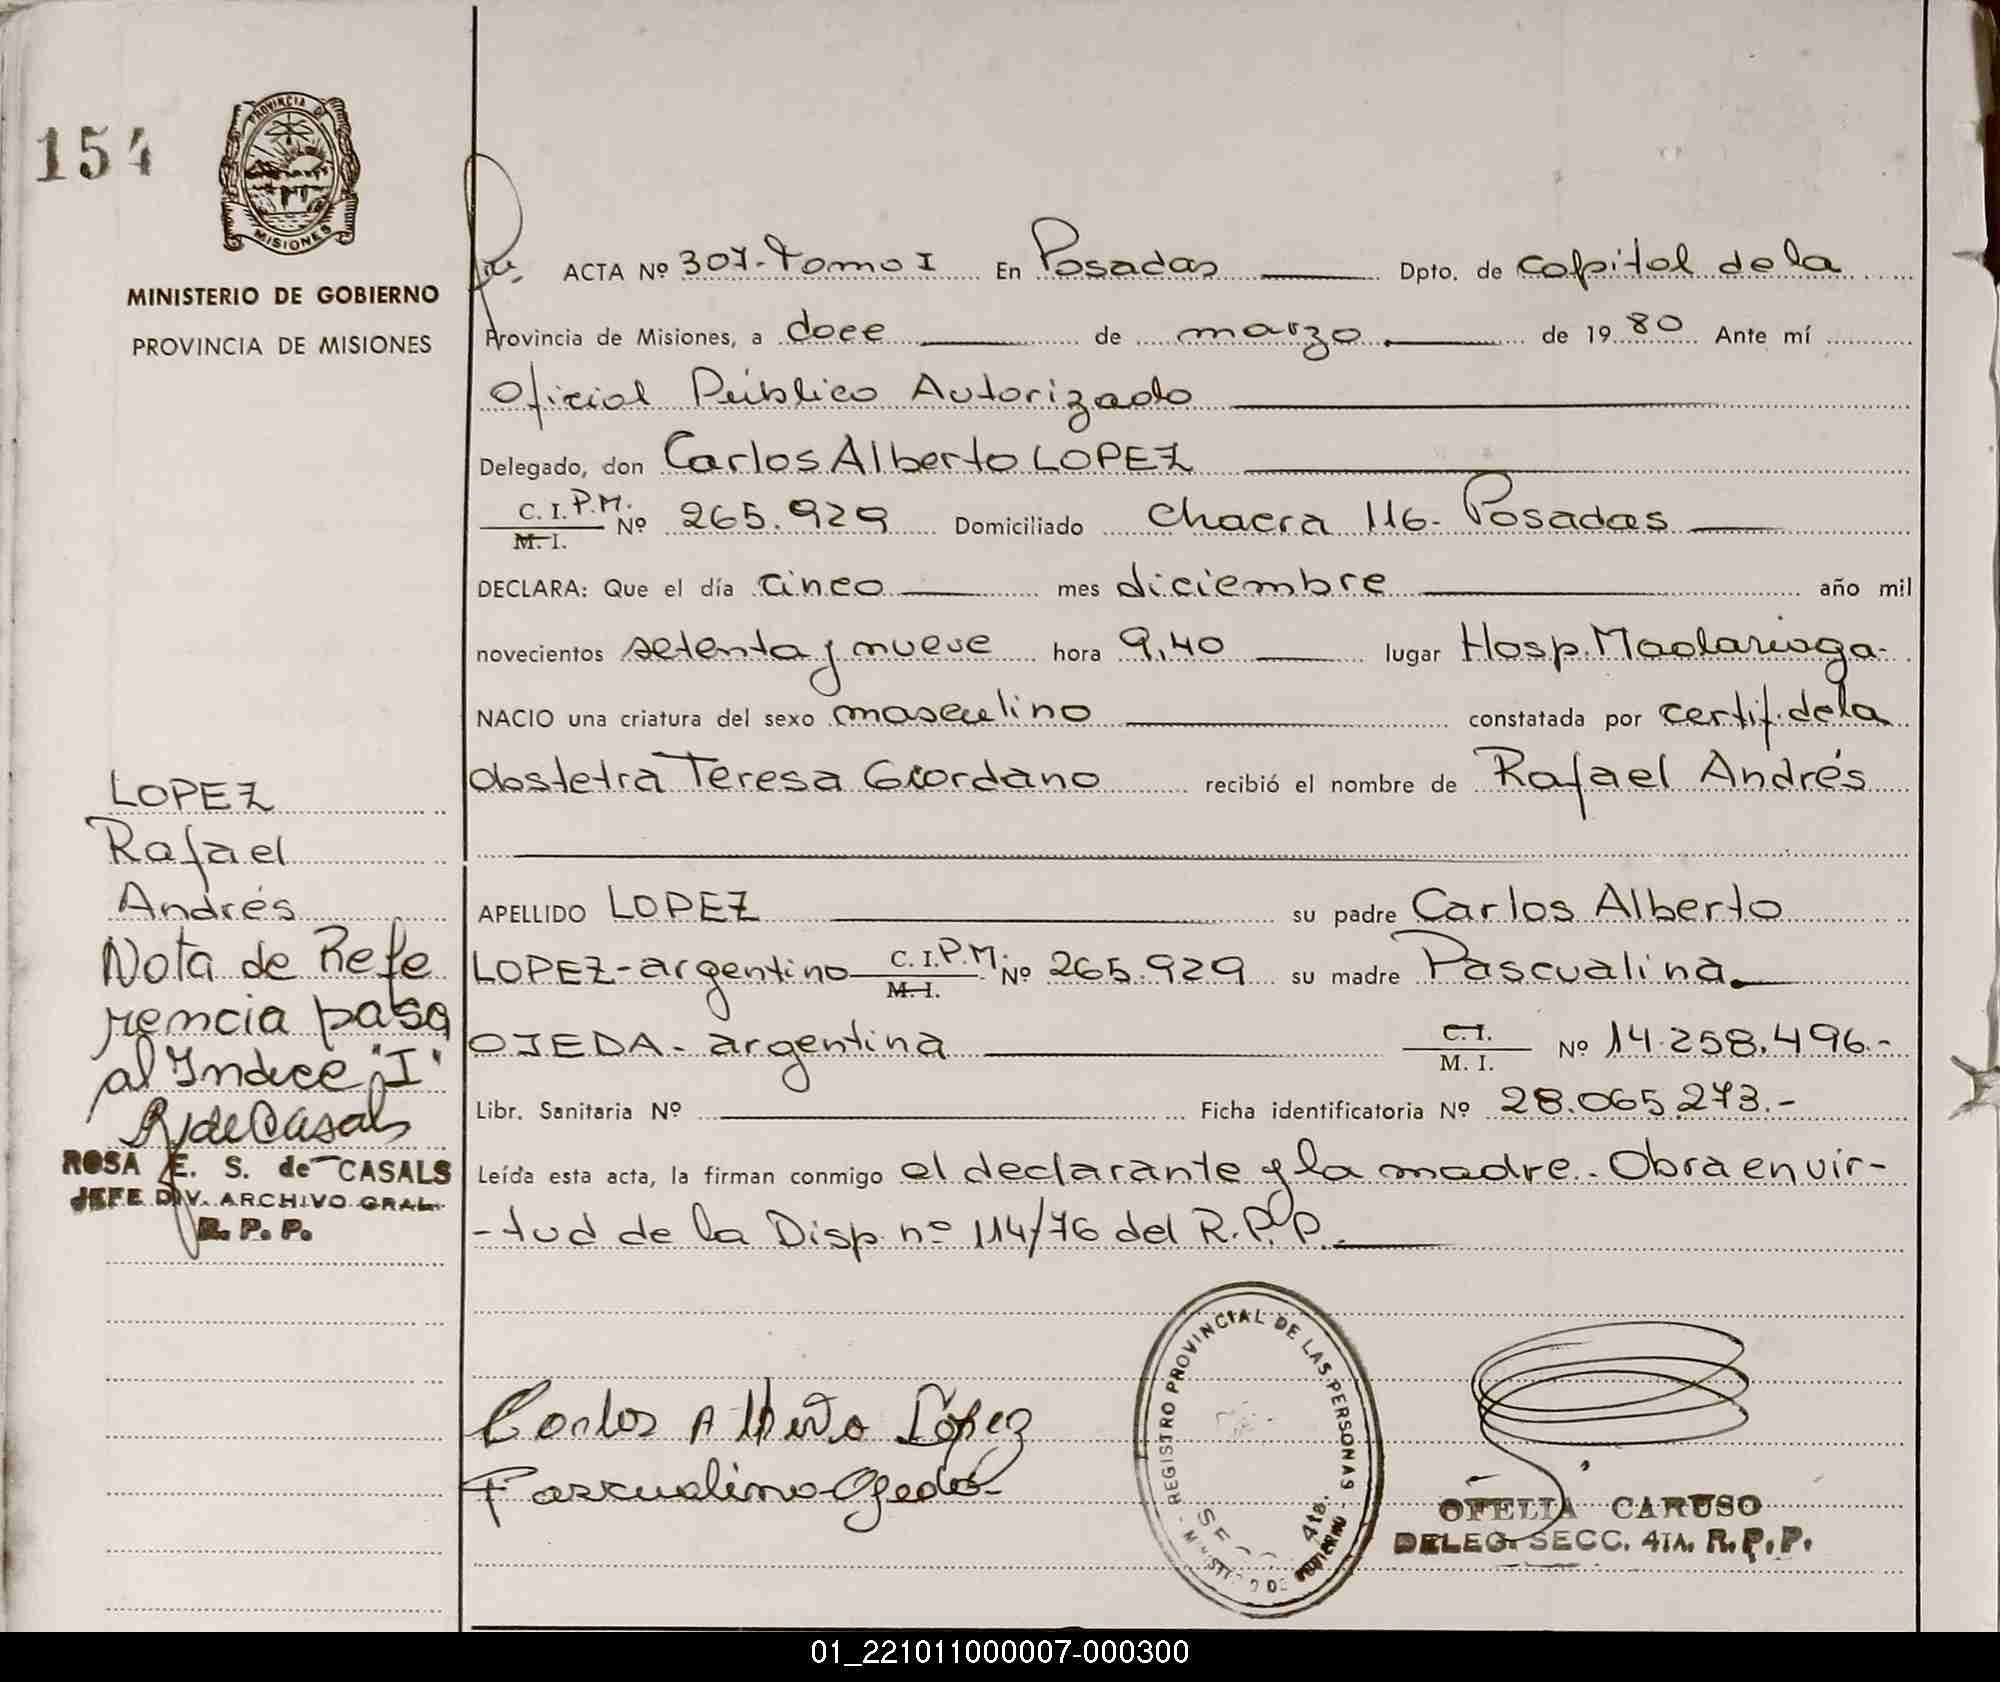 154
PROVINCIA DE
MISIONES
MINISTERIO DE GOBIERNO
PROVINCIA DE MISIONES
ACTA Nº 307- Tomo I En Posadas Dpto. de Capital de la
Provincia de Misiones, a doce de marzo de 19 80 Ante mí
Oficial Público Autorizado
Delegado, don Carlos Alberto LOPEZ
C. I. P.M.
M. I. Nº 265.929 Domiciliado Chacra 116- Posadas
DECLARA: Que el día cinco mes diciembre año mil
novecientos setenta y nueve hora 9,40 lugar Hosp. Madariaga-
NACIO una criatura del sexo masculino constatada por certif. de la
obstetra Teresa Giordano recibió el nombre de Rafael Andrés
APELLIDO LOPEZ su padre Carlos Alberto
LOPEZ-argentino C. I. P.M. M. I. Nº 265.929 su madre Pascualina
OJEDA- argentina C. I. M. I. Nº 14.258.496.-
Libr. Sanitaria Nº Ficha identificatoria Nº 28.065.273.-
Leída esta acta, la firman conmigo el declarante y la madre.- Obra en vir-
-tud de la Disp. nº 114/76 del R.P.P.
LOPEZ
Rafael
Andrés
Nota de Refe
rencia pasa
al Indice "I"
R de Casals
ROSA E. S. de CASALS
JEFE DIV. ARCHIVO GRAL.
R. P. P.
Carlos Alberto López
Pascualina Ojeda
REGISTRO PROVINCIAL DE LAS PERSONAS
4ta.
OFELIA CARUSO
DELEG. SECC. 4TA. R. P. P.
01_221011000007-000300